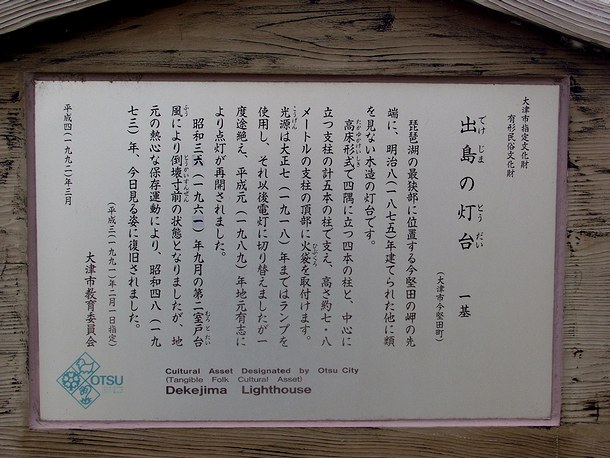 大津市指定文化財
有形民俗文化財
出島の灯台 一基
でけじま とうだい
(大津市今堅田町)
琵琶湖の最狭部に位置する今堅田の岬の先
端に、明治八(一八七五)年建てられた他に類
を見ない木造の灯台です。
高床形式で四隅に立つ四本の柱と、中心に
たかゆかけいしき
立つ支柱の計五本の柱で支え、高さ約七・八
メートルの支柱の頂部に火袋を取付けます。
ひぶくろ
光源は大正七(一九一八)年まではランプを
こうげん
使用し、それ以後電灯に切り替えましたが一
度途絶え、平成元(一九八九)年地元有志に
より点灯が再開されました。
昭和三六(一九六一)年九月の第二室戸台
むろとたい
風により倒壊寸前の状態となりましたが、地
ふう とうかいすんぜん
元の熱心な保存運動により、昭和四八(一九
七三)年、今日見る姿に復旧されました。
(平成三(一九九一)年二月一日指定)
大津市教育委員会
平成四(一九九二)年三月
OTSU
Cultural Asset Designated by Otsu City
(Tangible Folk Cultural Asset)
Dekejima Lighthouse